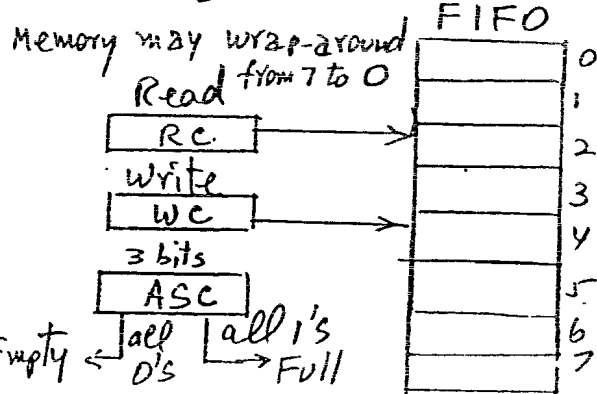 FIFO
Memory may wrap-around
from 7 to 0
Read
RC.
Write
WC
3 bits
ASC
Empty all 0's all 1's Full
0
1
2
3
4
5
6
7